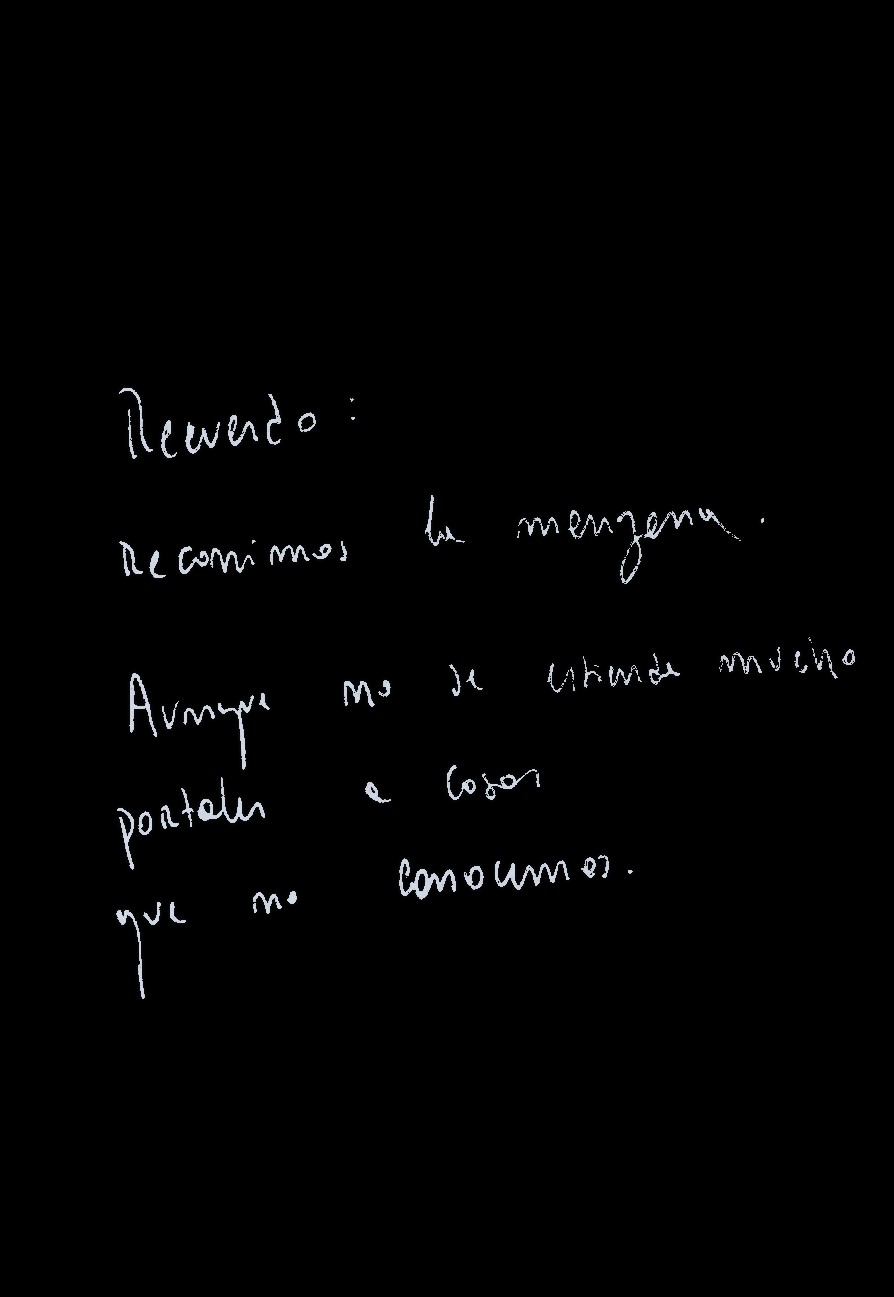 Recuerdo:
Recorrimos la menzena.
Aunque no se entiende mucho
portales a cosas
que no conocemos.